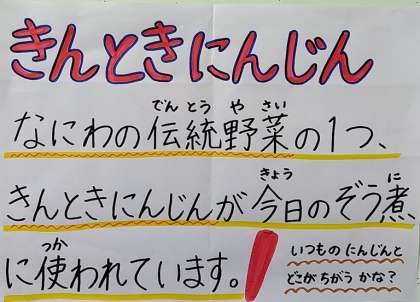 きんときにんじん
でんとうやさい
なにわの伝統野菜の1つ、
きょう に
きんときにんじんが今日のぞう煮
つか
に使われています。
いつものにんじんと
どこがちがうかな?